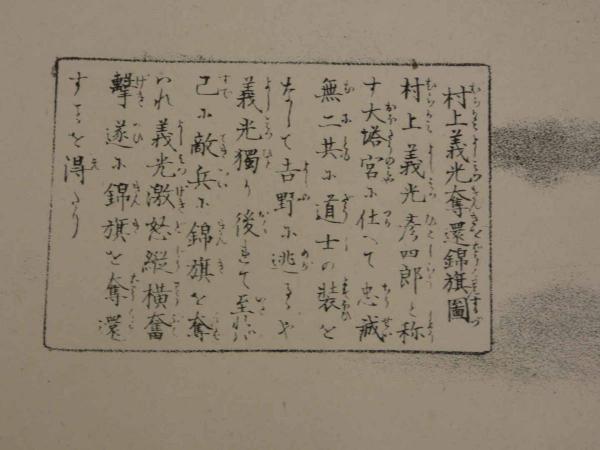 村上義光奪還錦旗圖
村上義光彦四郎と称
す大塔宮に仕へて忠誠
無二其に道士の装を
なして吉野に逃るゝや
義光獨り後れて至れバ
已に敵兵に錦旗を奪
られ義光激怒縦横奮
撃遂に錦旗を奪還
することを得たり